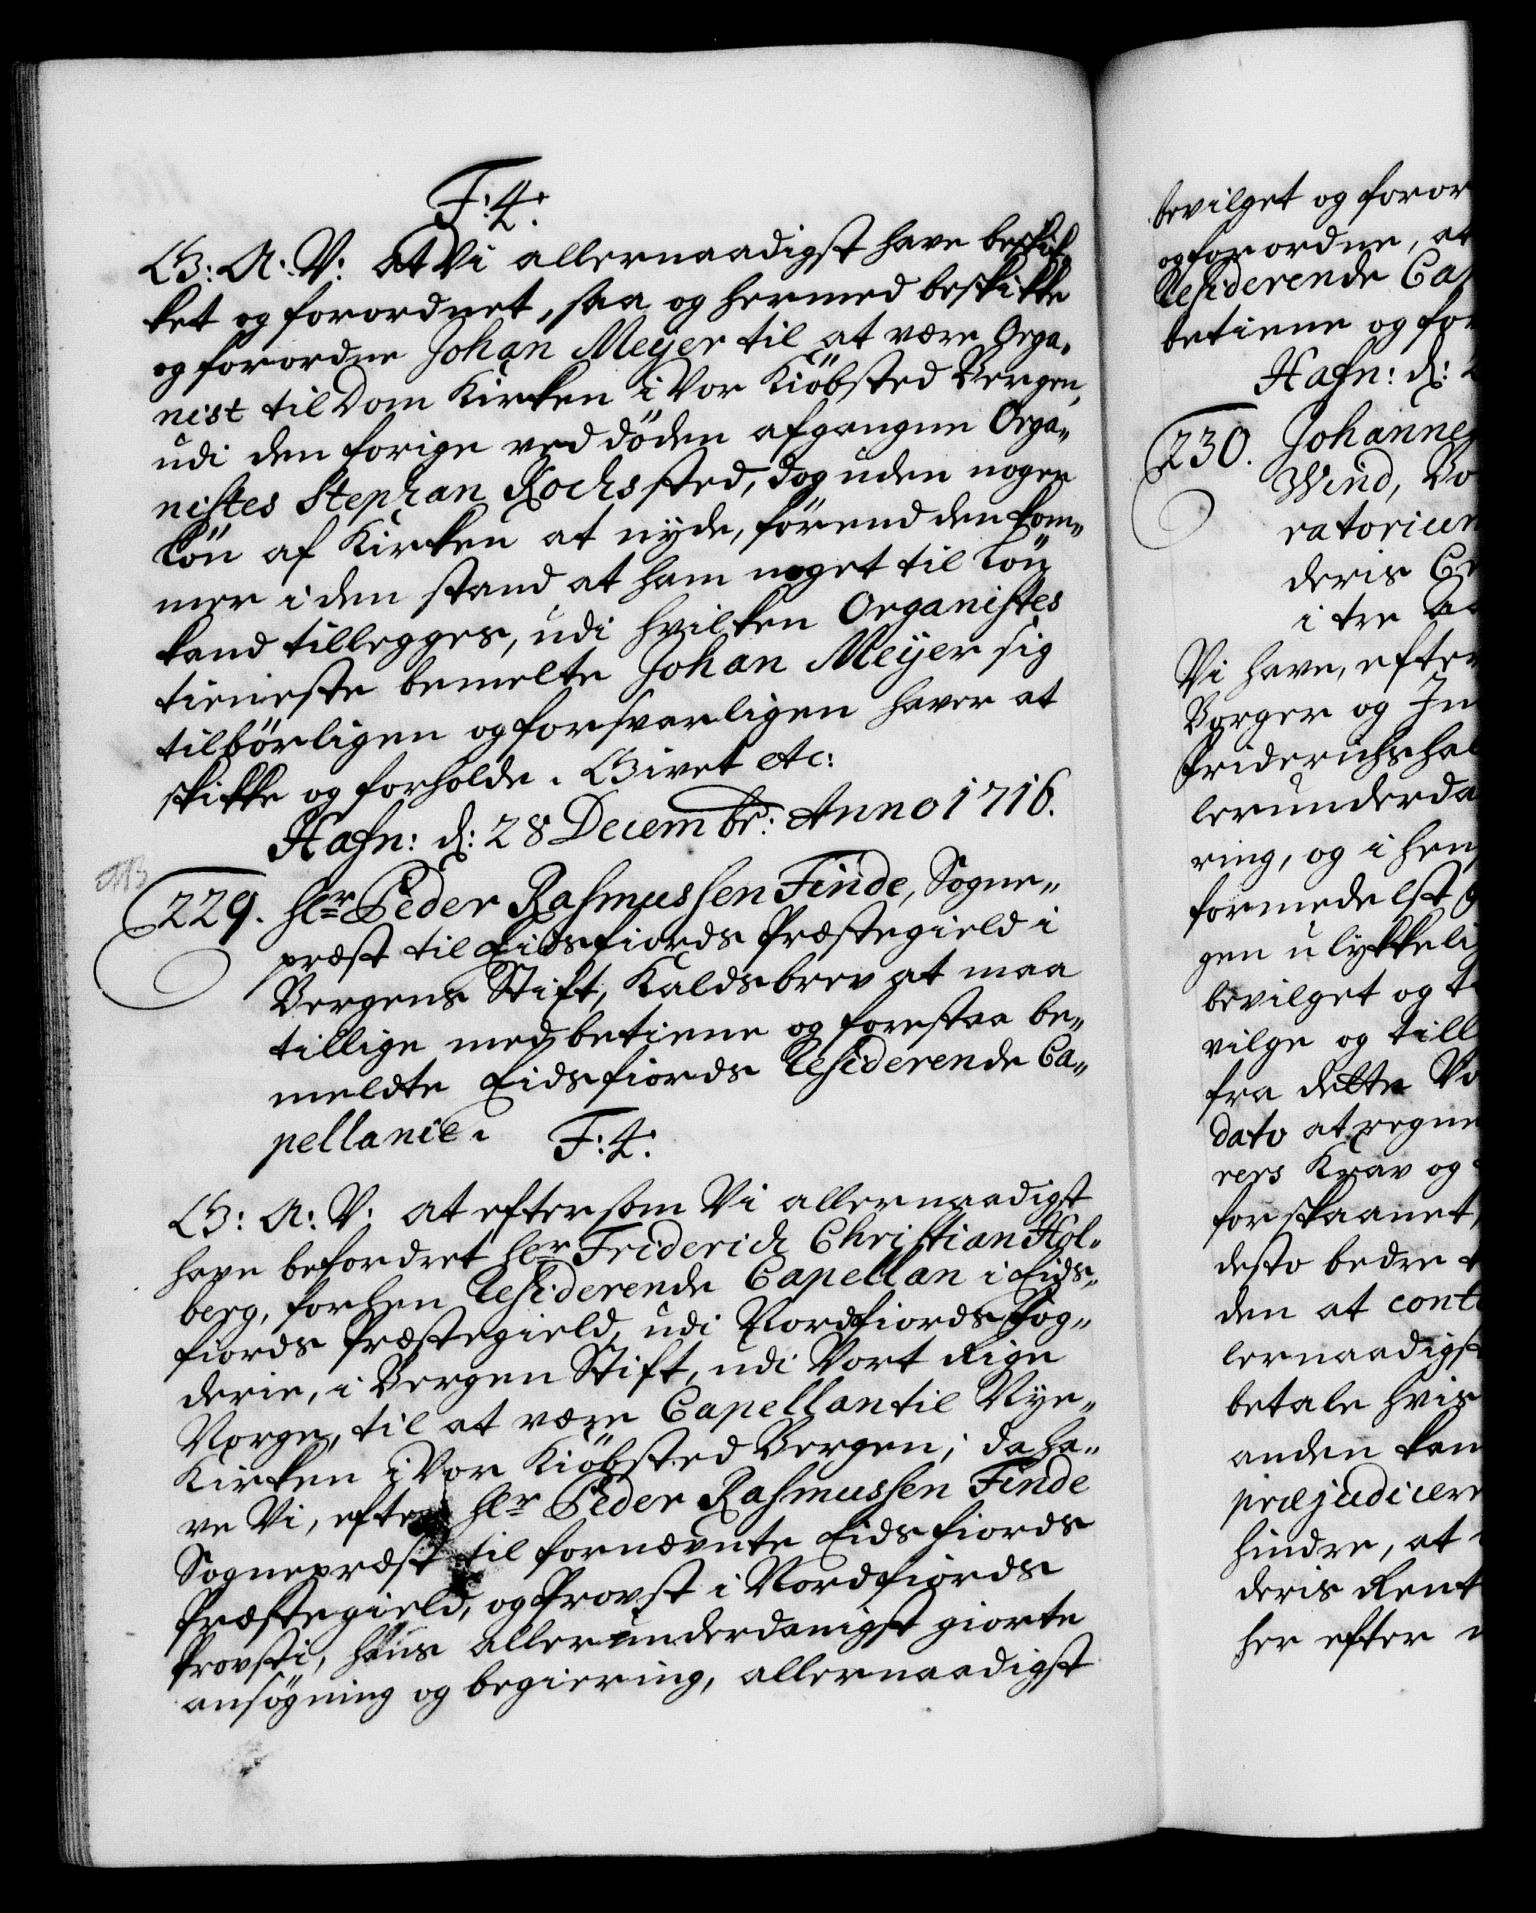 F: 4.
G: A: V: At Vi allernaadigst have beskik-
ket og forordnet, saa og hermed beskikke
og forordne Johan Meyer til at være Orga-
nist til Dom Kirken i Vor Kiöbsted Bergen,
udi den forige ved döden afgangne Orga-
nistes Stephan Kochs sted, dog uden nogen
Lön af Kirken at nyde, förend den kom-
mer i den stand at ham noget til Lön
kand tillegges, udi hvilken Organistes
tieneste bemelte Johan Meyer sig
tilbörligen og forsvarligen haver at
skikke og forholde. Givet etc:
Hafn: d: 28 Decembr: Anno 1716.
NB
229. Hr Peder Rasmussen Finde, Sogne-
præst til Eidsfiords Præstegield i
Bergens Stift, Kaldsbrev at maa
tillige med betiene og forestaa be-
meldte Eidsfiords Residerende Ca-
pellanie. F: 4.
G: A: V: At eftersom Vi allernaadigst
have befordret Hr Friderich Christian Hol-
berg, forhen Residerende Capellan i Eids-
fiords Præstegield, udi Nordfiords Fog-
derie, i Bergen Stift, udi Vort Rige
Norge, til at være Capellan til Nye-
Kirken i Vor Kiöbsted Bergen; da ha-
ve Vi, efter Hr Peder Rasmussen Finde
Sognepræst til fornævnte Eidsfiords
Præstegield, og Provst i Nordfiords
Provsti, hans allerunderdanigst giorte
ansögning og begiering, allernaadigst
bevilget og foror
og forordne, at
Residerende Cap
betiene og for
Hafn: d: 2
230. Johannes
Wind, Bo
ratorium
deris Cr
i tre Aa
Vi have, efter
Borger og In
Friderichshal
lerunderda
ring, og i hen
formedelst
gen ulykkelig
bevilget og t
vilge og till
fra dette Vo
dato at regne
rers Krav og
forskaanet,
desto bedre
den at cont
lernaadigst
betale hvis
anden kan
præjudicere
hindre, at
deris Rent
her efter